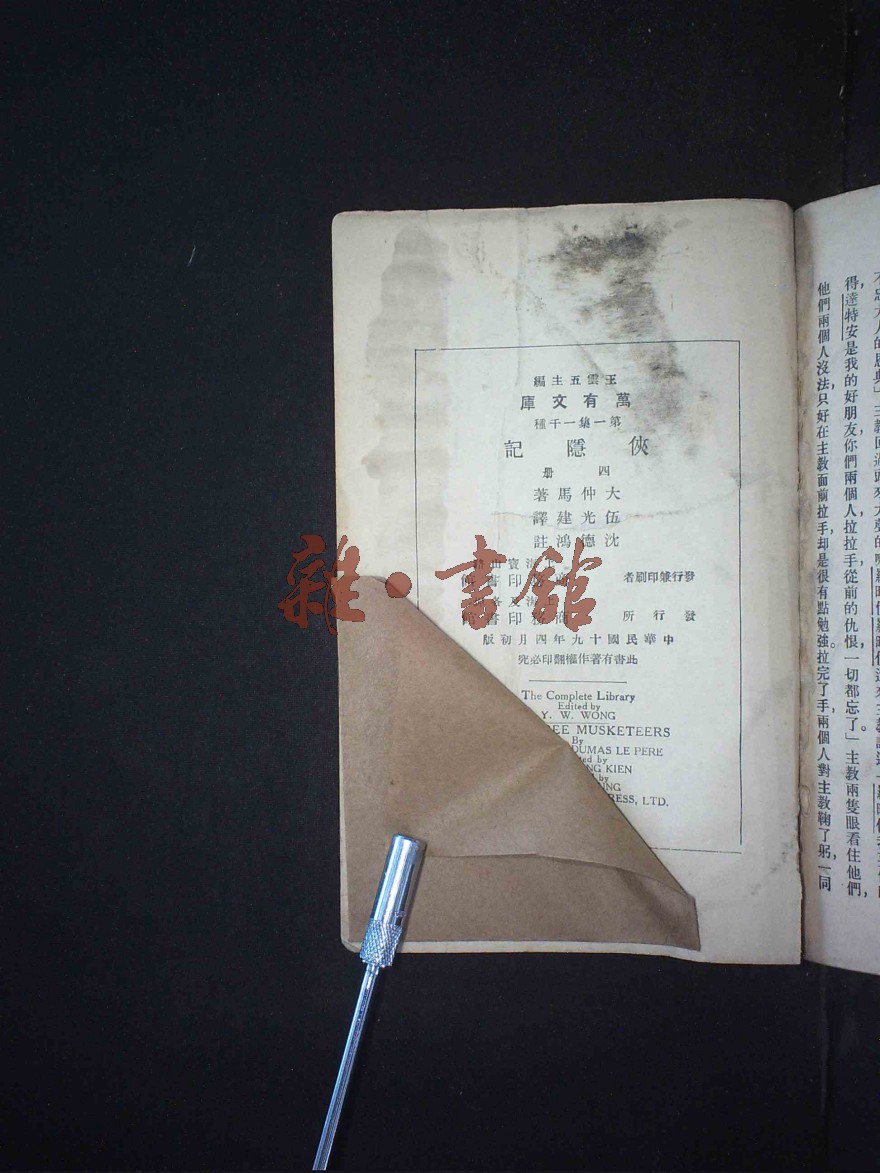 王雲五主編
萬有文庫
第一集一千種
俠隱記
四册
大仲馬著
伍光建譯
沈德鴻註
發行兼印刷者
海寶山
印書館
發行所
海及各
商務印書館
中華民國十九年四月初版
此書有著作權翻印必究
The Complete Library
Edited by
Y. W. WONG
EE MUSKETEERS
By
DUMAS LE PERE
ted by
NG KIEN
by
UNG
RESS, LTD.
雜·書館
得,達特安是我的好朋友,你們兩個人拉拉手,從前的仇恨,一切都忘了。」主教兩隻眼看住他們,
他們兩個人沒法,只好在主教面前拉手,却是很有點勉強。拉完了手,兩個人對主教鞠了躬,一同